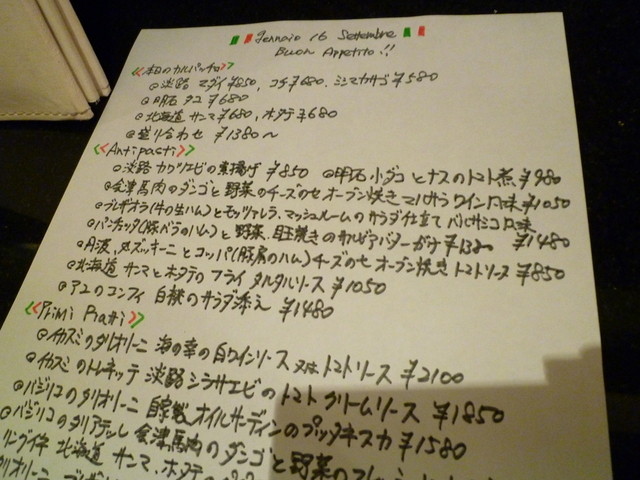 Gennaio 16 Settembre
Buon Appetito!!
<<本日のカルパッチョ>>
@淡路 マダイ¥850, コチ¥680, シマカサゴ¥580
@明石 タコ ¥680
@北海道 サンマ ¥680, ホタテ ¥680
@盛り合わせ ¥1380〜
<<Antipasti>>
@淡路 カワツエビの素揚げ ¥850 @明石 小ダコとナスのトマト煮 ¥980
@会津馬肉のダンゴと野菜のチーズのせオーブン焼き マルサラワイン風味 ¥1050
@ブレザオラ(牛の生ハム)とモッツァレラ、マッシュルームのサラダ仕立て バルサミコ風味 ¥1480
@パンチェッタ(豚バラのハム)と野菜、目玉焼きの バターがけ ¥1320
@丹波, ズッキーニとコッパ(豚肩のハム)チーズのせオーブン焼き トマトソース ¥850
@北海道 サンマとホタテのフライ タルタルソース ¥1050
@アユのコンフィ 白桃のサラダ添え ¥1480
<<Primi Piatti>>
@イカスミのタリオリーニ 海の幸の白ワインソース 又は トマトソース ¥2100
@イカスミのトレネッテ 淡路シラサエビのトマトクリームソース ¥1850
@バジリコのタリオリーニ 自家製オイルサーディンのプッタネスカ ¥1580
@バジリコのタリアテッレ 会津馬肉のダンゴと野菜の
リングイネ 北海道 サンマ、ホタテの
タリオリーニ